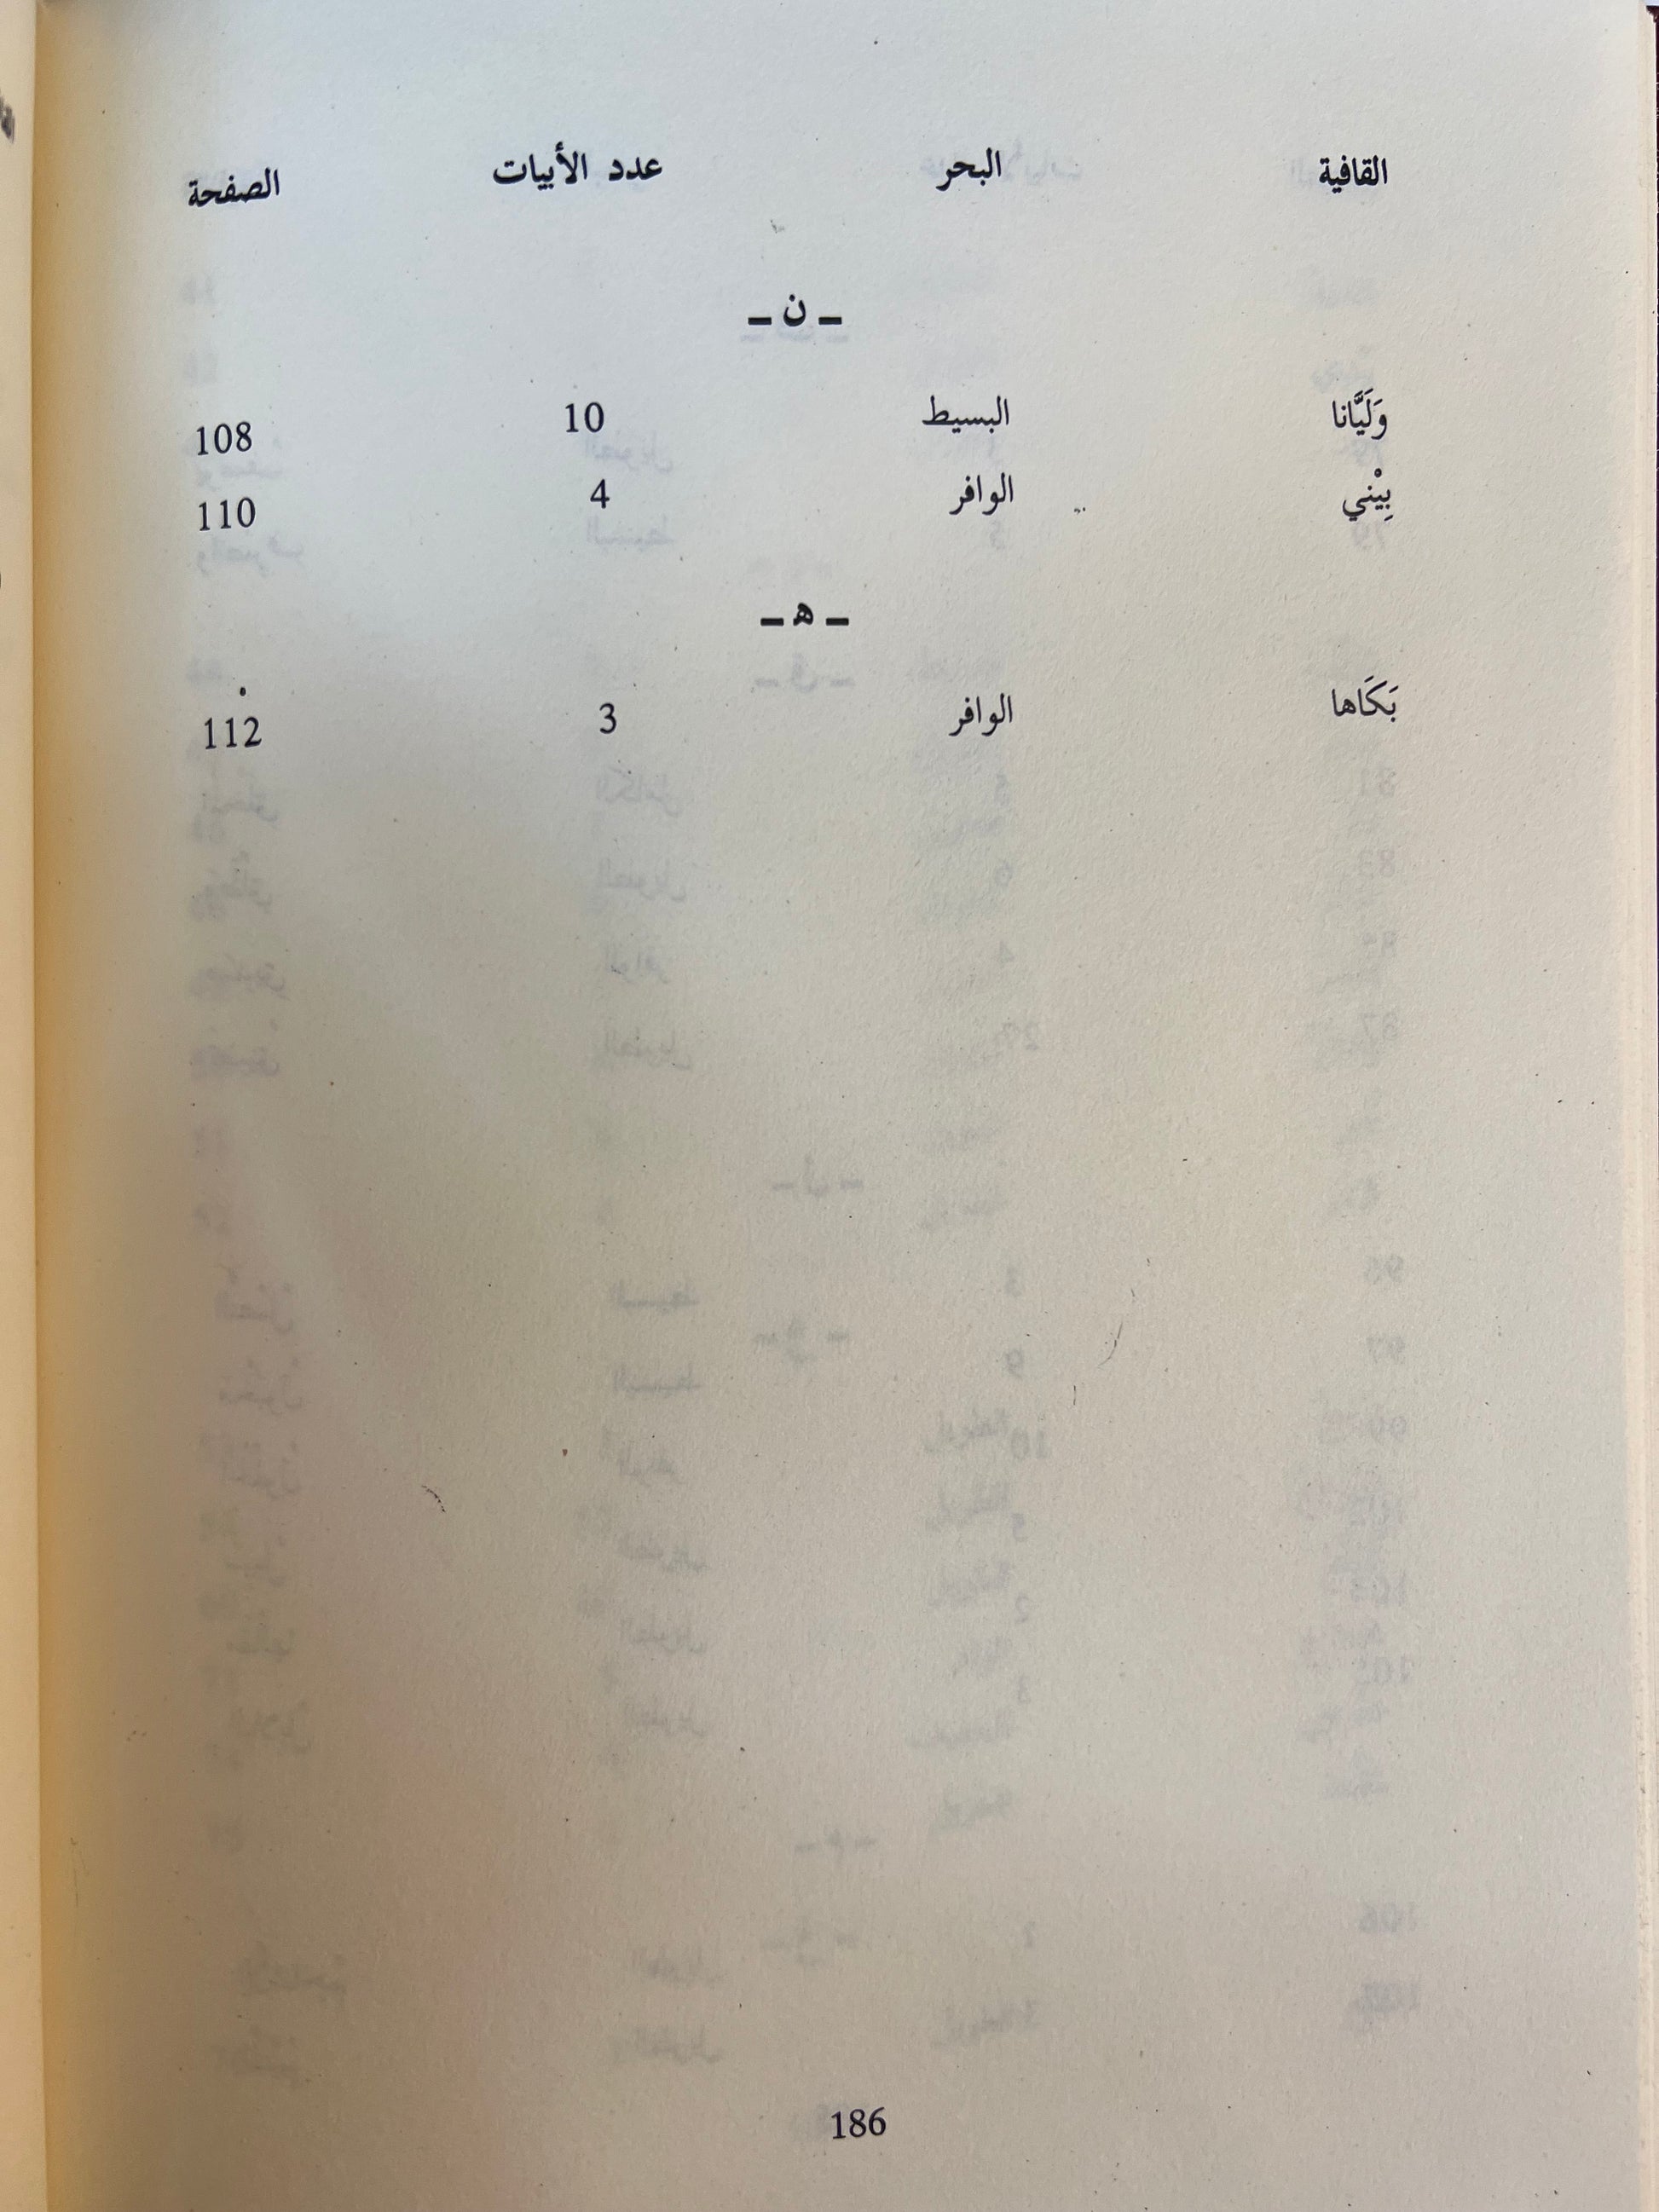 القافية البحر عدد الأبيات الصفحة
ـ ن ـ
وَلَيَّانا البسيط 10 108
بِيْني الوافر 4 110
ـ ه ـ
بَكَاها الوافر 3 112
186